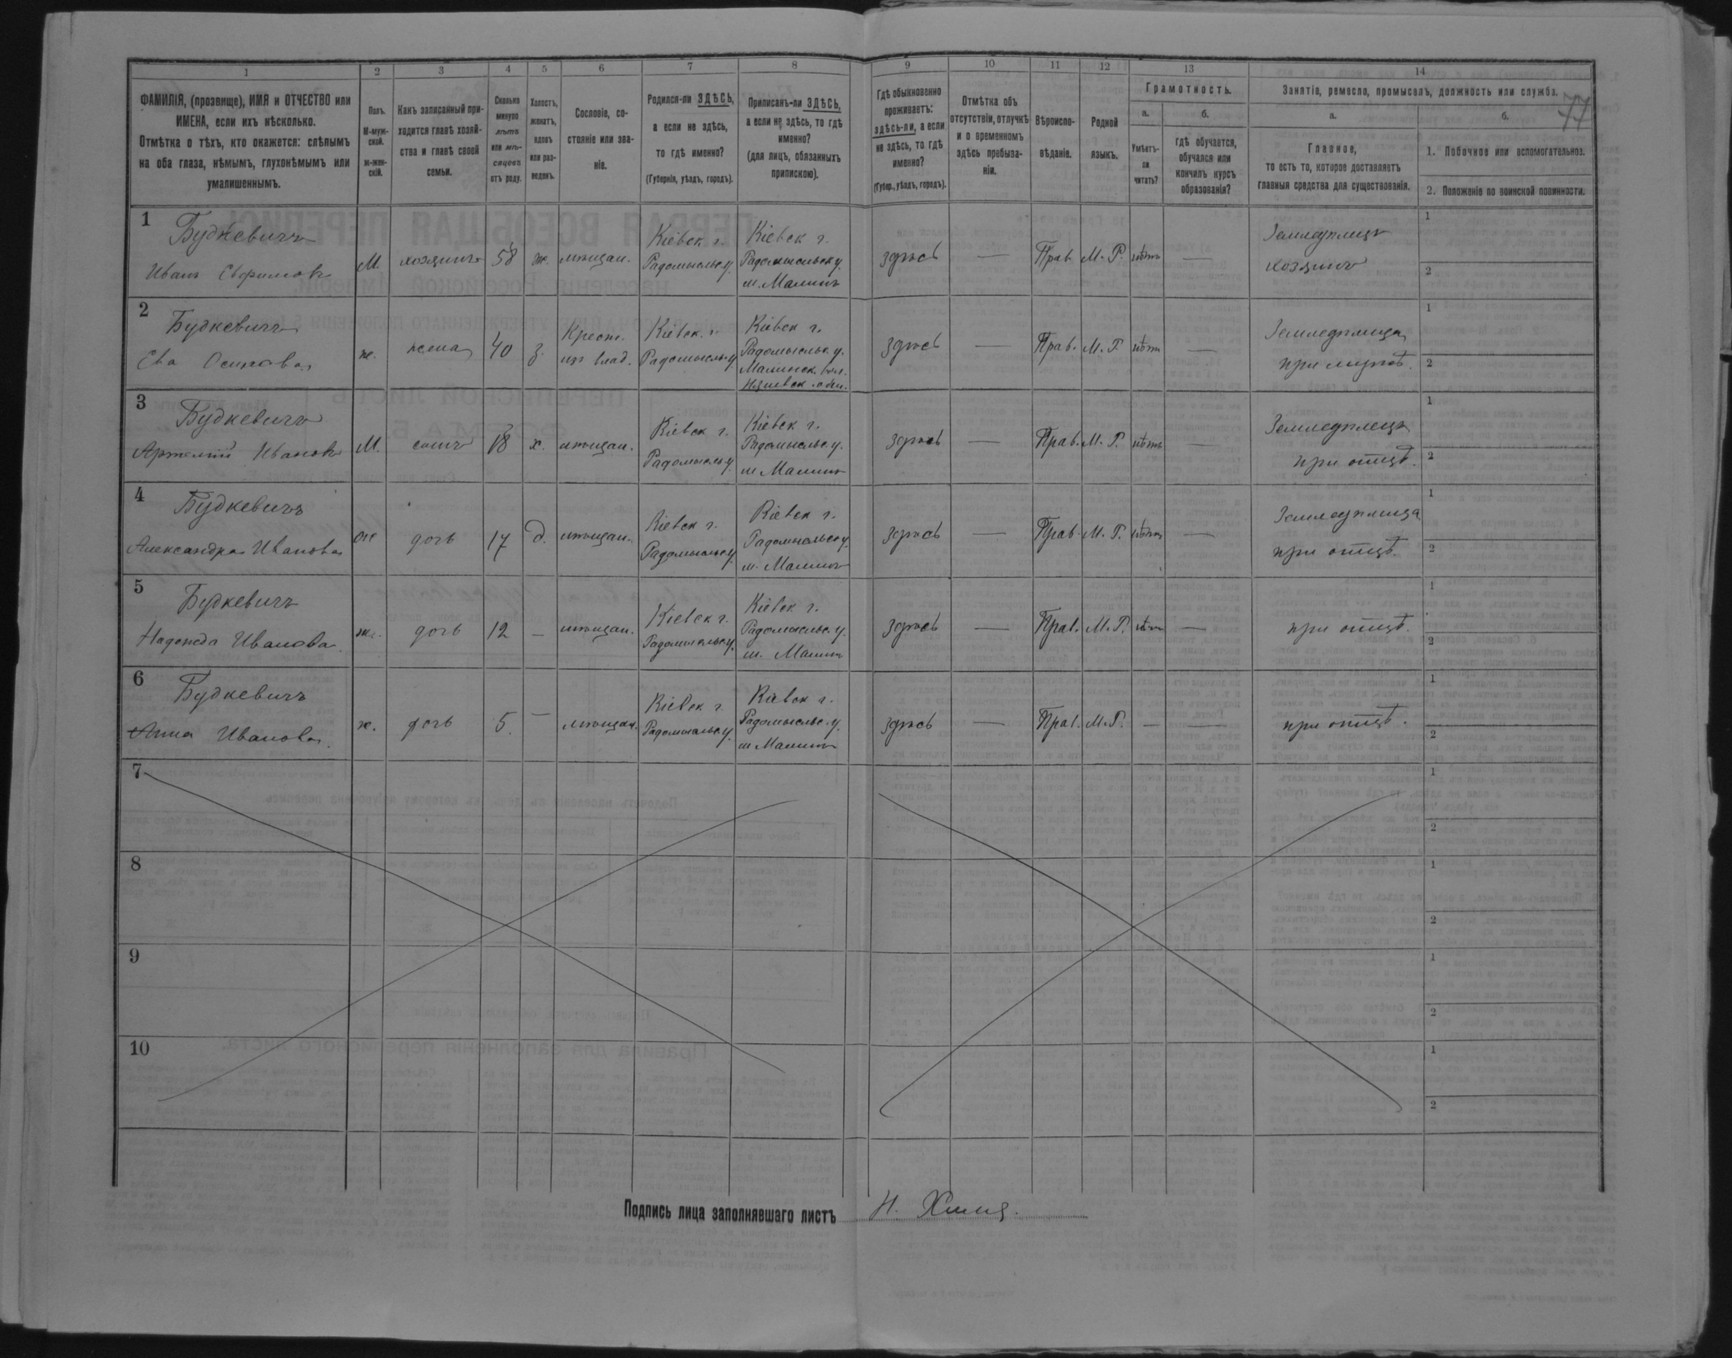 77
1 2 3 4 5 6 7 8 9 10 11 12 13 14
ФАМИЛІЯ, (прозвище), ИМЯ и ОТЧЕСТВО или
ИМЕНА, если ихъ нѣсколько.
Отмѣтка о тѣхъ, кто окажется: слѣпымъ
на оба глаза, нѣмымъ, глухонѣмымъ или
умалишеннымъ.
Полъ.
М-муж-
ской.
Ж-жен-
скій.
Какъ записанный при-
ходится главѣ хозяй-
ства и главѣ своей
семьи.
Сколько
минуло
лѣтъ
или мѣ-
сяцевъ
отъ роду.
Холостъ,
женатъ,
вдовъ
или раз-
веденъ.
Сословіе, со-
стояніе или зва-
ніе.
Родился-ли ЗДѢСЬ,
а если не здѣсь,
то гдѣ именно?
(Губернія, уѣздъ, городъ).
Приписанъ-ли ЗДѢСЬ,
а если не здѣсь, то гдѣ
именно?
(для лицъ, обязанныхъ
припискою).
Гдѣ обыкновенно
проживаетъ:
здѣсь-ли, а если
не здѣсь, то гдѣ
именно?
(Губер., уѣздъ, городъ).
Отмѣтка объ
отсутствіи, отлучкѣ
и о временномъ
здѣсь пребыва-
ніи.
Вѣроиспо-
вѣданіе.
Родной
языкъ.
Грамотность.
а.
Умѣетъ-
ли
читать?
б.
Гдѣ обучается,
обучался или
кончилъ курсъ
образованія?
Занятіе, ремесло, промыселъ, должность или служба.
а.
Главное,
то есть то, которое доставляетъ
главныя средства для существованія.
б.
1. Побочное или вспомогательное.
2. Положеніе по воинской повинности.
1
Будкевичъ
Иванъ Ефимовъ
М.
хозяинъ
58
ж.
мѣщан.
Кіевск г.
Радомысльск у.
Кіевск г.
Радомысльск у.
м. Малинъ
здѣсь
—
Прав.
М. Р.
нѣтъ
—
Земледѣлецъ
хозяинъ
1
2
2
Будкевичъ
Ева Осипова
ж.
жена
40
з.
Крест.
изъ влад.
Кіевск. г.
Радомысльск у.
Кіевск г.
Радомысльск. у.
Малинск. вол.
здѣсь
—
Прав.
М. Р.
нѣтъ
—
Земледѣлица
при мужѣ.
1
2
3
Будкевичъ
Артемій Ивановъ
М.
сынъ
18
х.
мѣщан.
Кіевск г.
Радомысльск у.
Кіевск г.
Радомысльск у.
м Малинъ
здѣсь
—
Прав.
М. Р.
нѣтъ
—
Земледѣлецъ
при отцѣ.
1
2
4
Будкевичъ
Александра Иванова
ж
дочь
17
д.
мѣщан.
Кіевск г.
Радомысльск у.
Кіевск г.
Радомысльск у.
м. Малинъ
здѣсь
—
Прав.
М. Р.
нѣтъ
—
Земледѣлица
при отцѣ.
1
2
5
Будкевичъ
Надежда Иванова.
ж.
дочь
12
—
мѣщан.
Кіевск г.
Радомысльск у.
Кіевск г.
Радомысльск. у.
м. Малинъ
здѣсь
—
Прав.
М. Р.
нѣтъ
—
при отцѣ.
1
2
6
Будкевичъ
Анна Иванова.
ж.
дочь
5.
—
мѣщан.
Кіевск г.
Радомысльск у.
Кіевск г.
Радомысльс. у.
м Малинъ
здѣсь
—
Прав.
М. Р.
—
—
при отцѣ.
1
2
7
1
2
8
1
2
9
1
2
10
1
2
Подпись лица заполнявшаго листъ